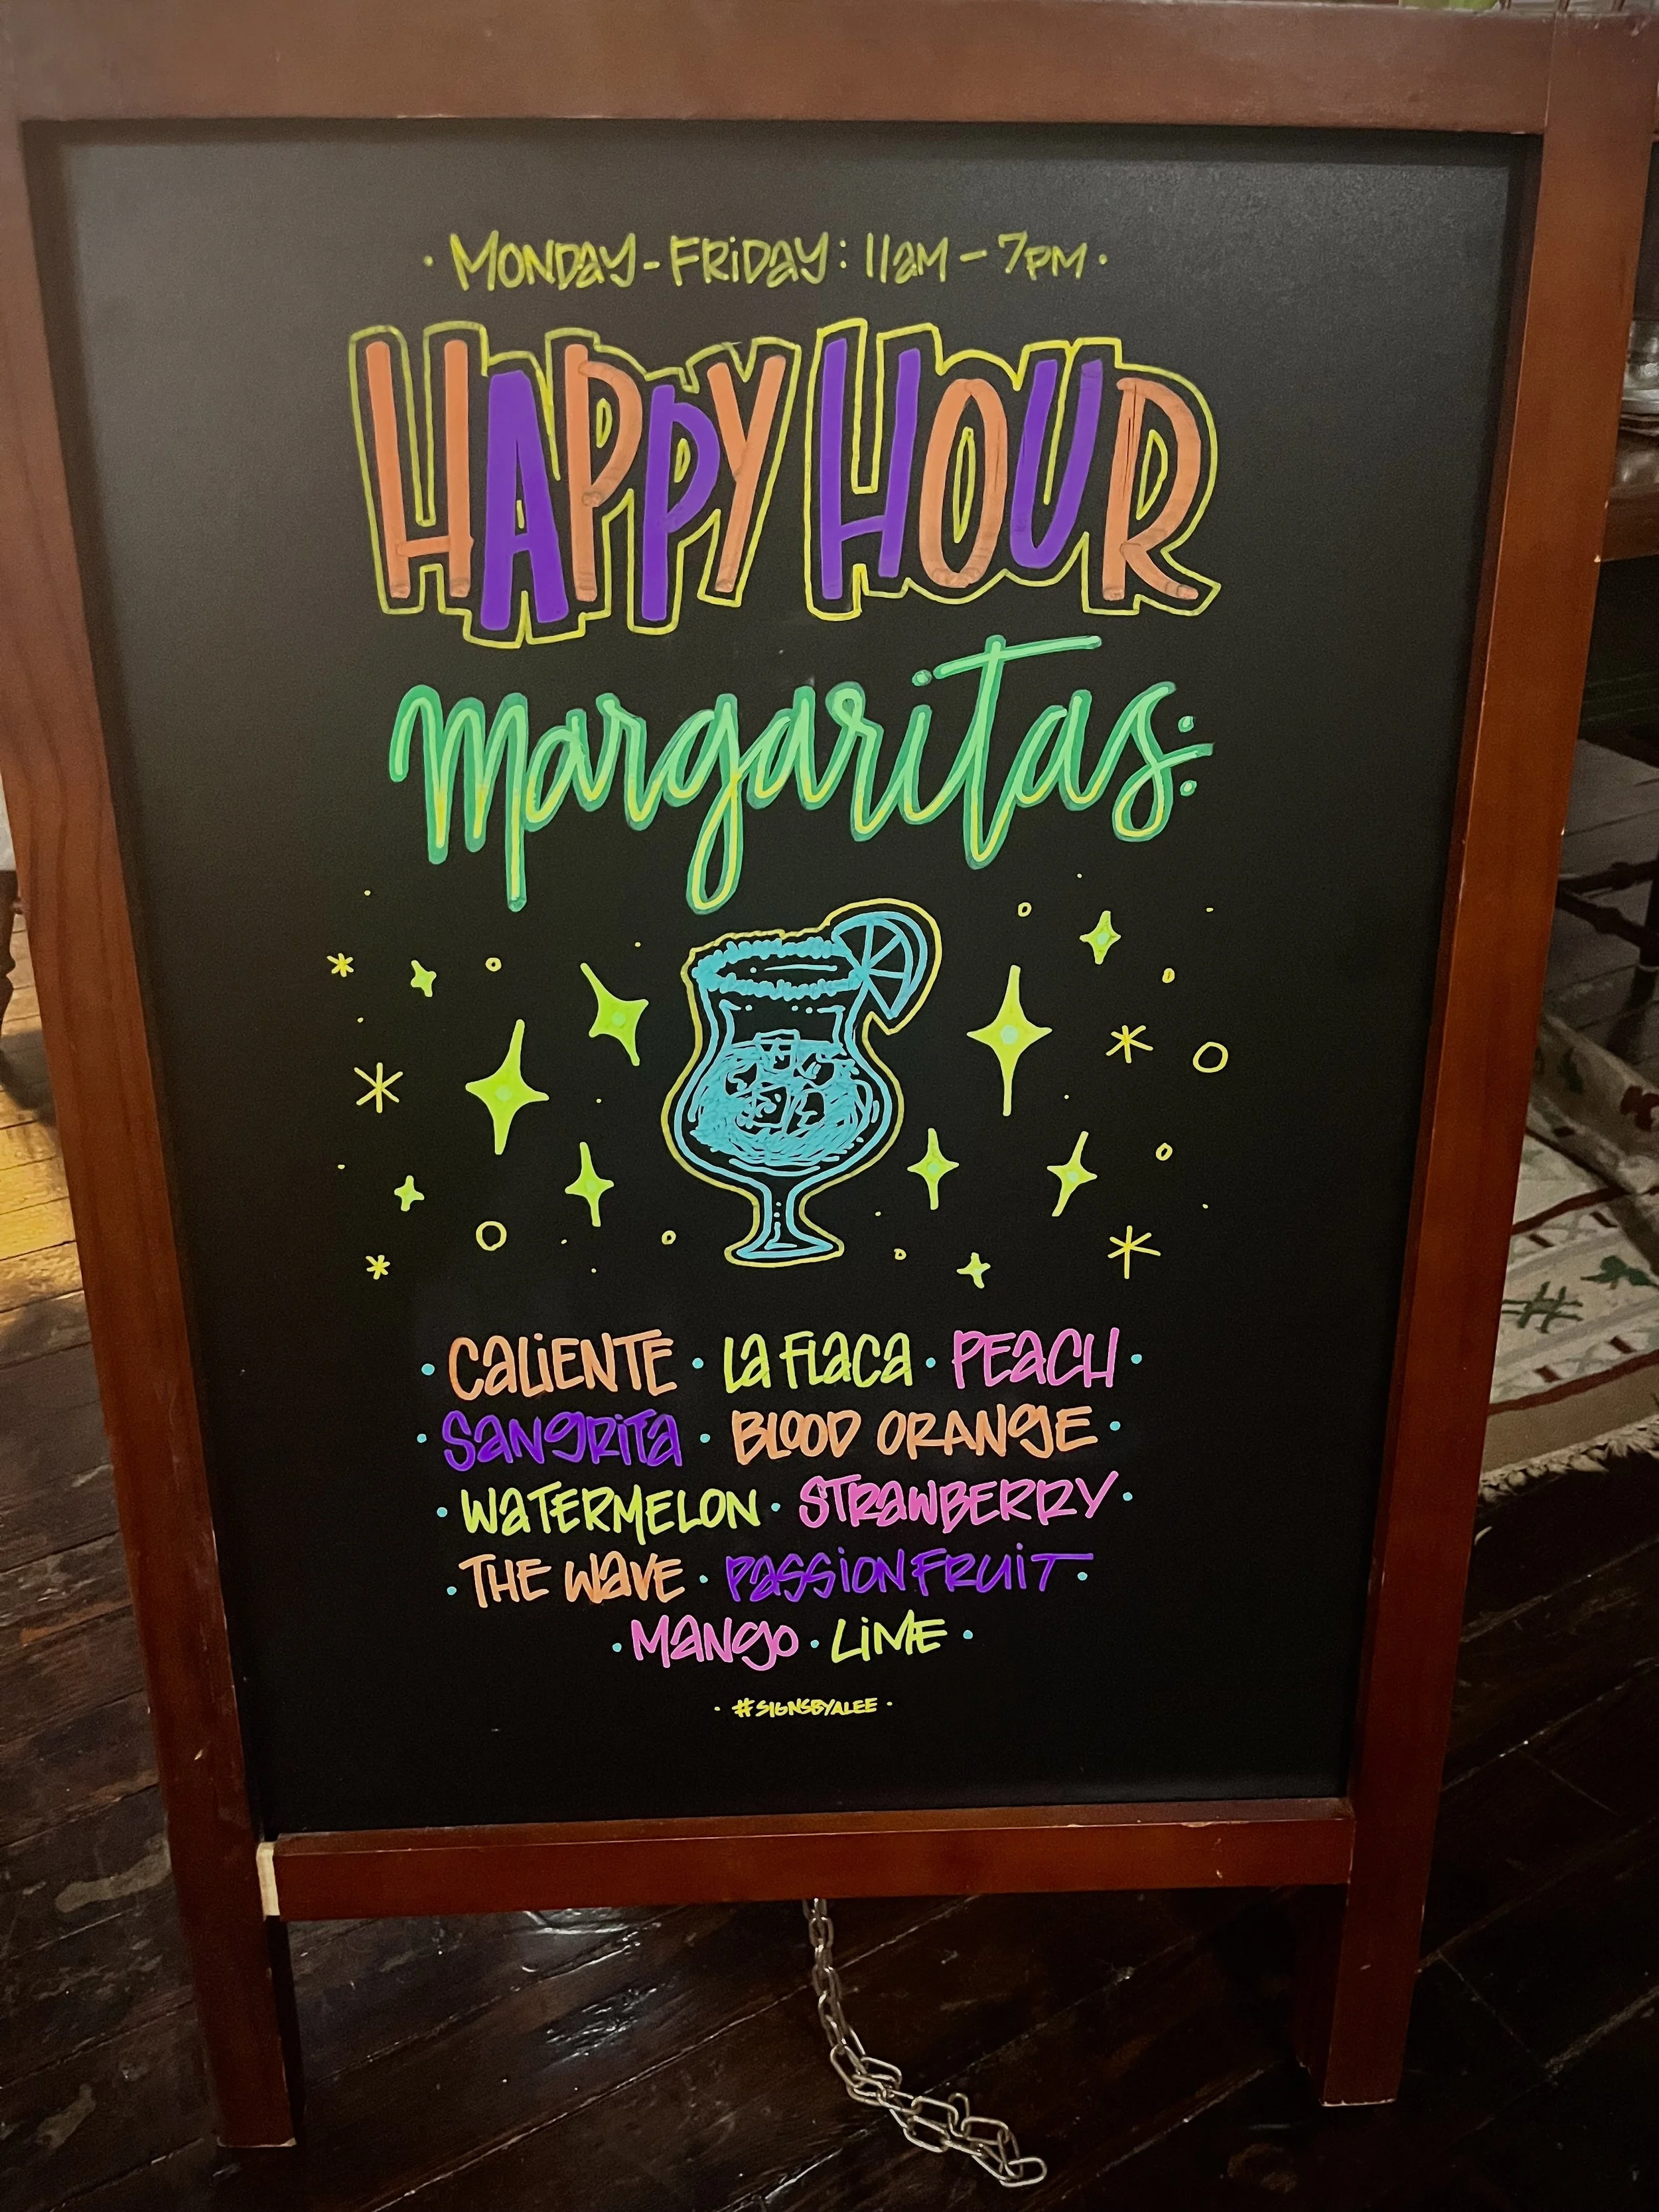 · MONDAY - FRIDAY : 11AM - 7PM ·
HAPPY HOUR
Margaritas:
· CALIENTE · LA FLACA · PEACH ·
· SANGRITA · BLOOD ORANGE ·
· WATERMELON · STRAWBERRY ·
· THE WAVE · PASSIONFRUIT ·
· MANGO · LIME ·
· #SIGNSBYALEE ·